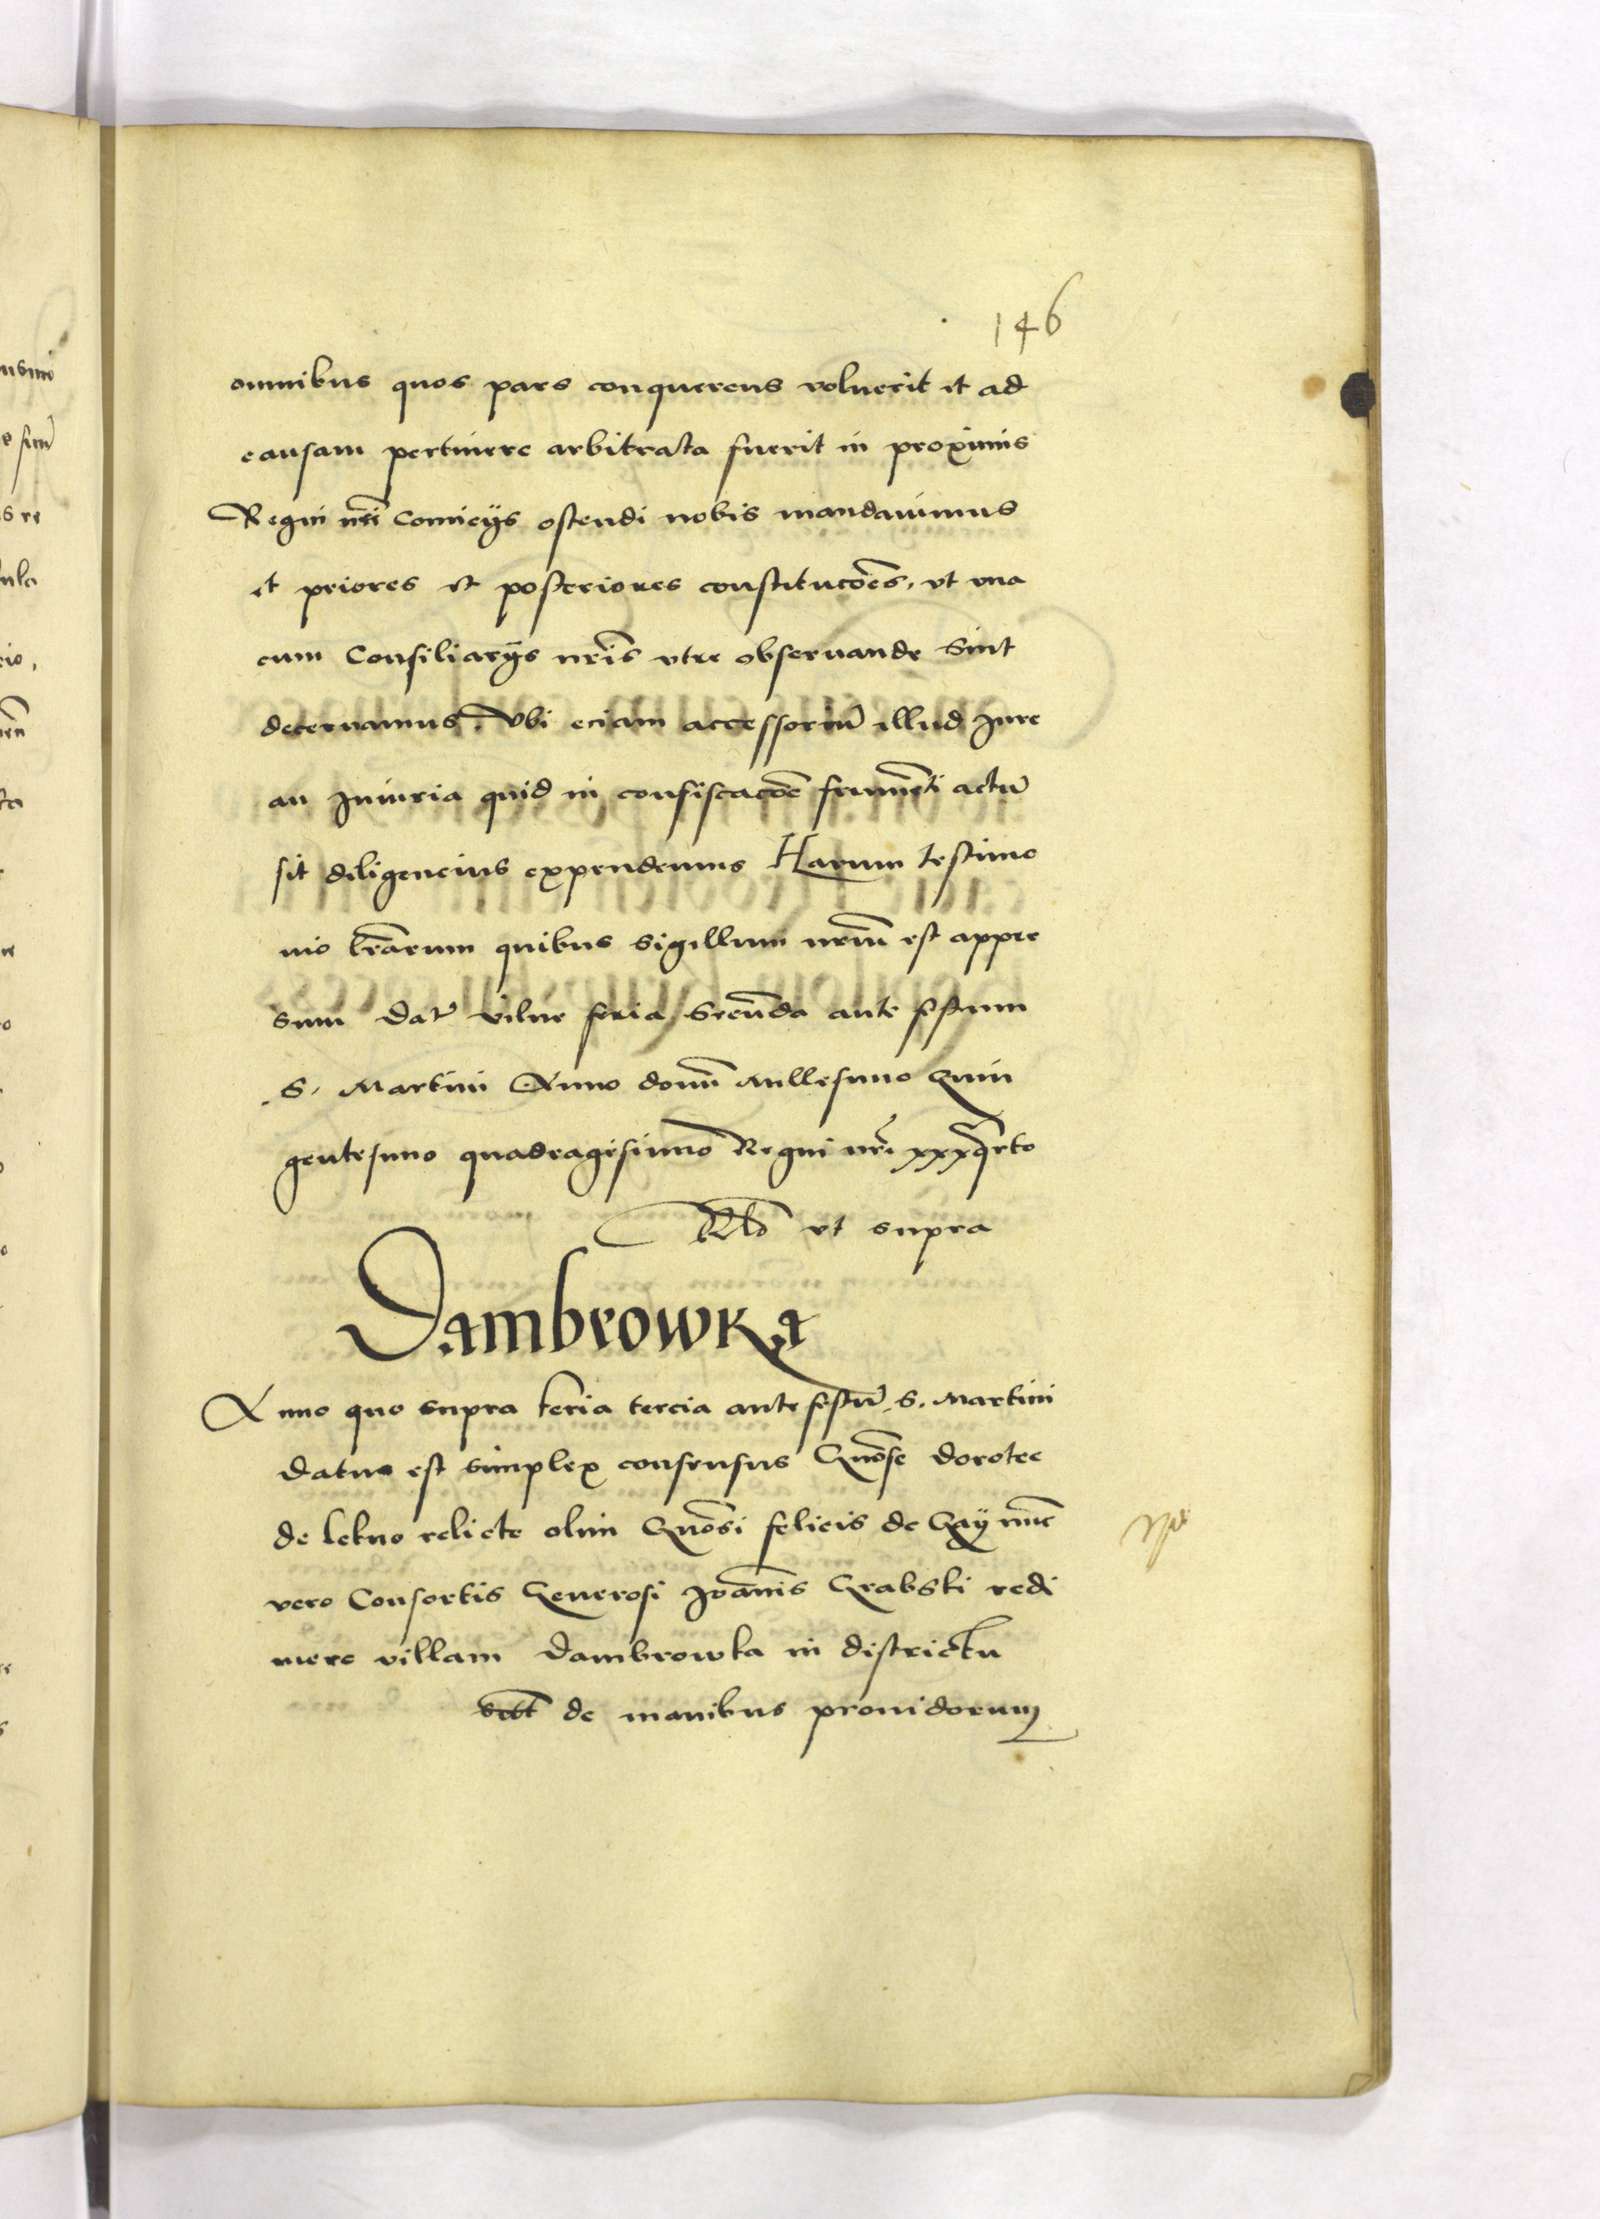 146
omnibus quos pars conquerens voluerit et ad
causam pertinere arbitrata fuerit in proximis
Regni nri Comicijs ostendi nobis mandauimus
et priores et posteriores constitucões, vt vna
cum Consiliarijs nris vtre obseruande sint
decernamus. Vbi eciam accessoriũ illud Jure
an Jniuria quid in confiscacõe frumẽti actũ
sit diligencius expendemus Harum testimo
nio lrãrum quibus sigillum nrũm est appre
sum Dat Vilne feria Secũnda ante festum
S. Martini Anno domĩ Millesimo Quin
gentesimo quadragesimo Regni nri xxxqrto
Rlo vt supra
Dambrowka
Anno quo supra feria tercia ante festũ S. Martini
Datus est simplex consensus Gnõse Dorotee
de Lekno relicte olim Gnõsi felicis de Gay nũc
vero Consortis Generosi Joãnnis Grabski redi
mere villam Dambrowka in districtu
de manibus prouidorum